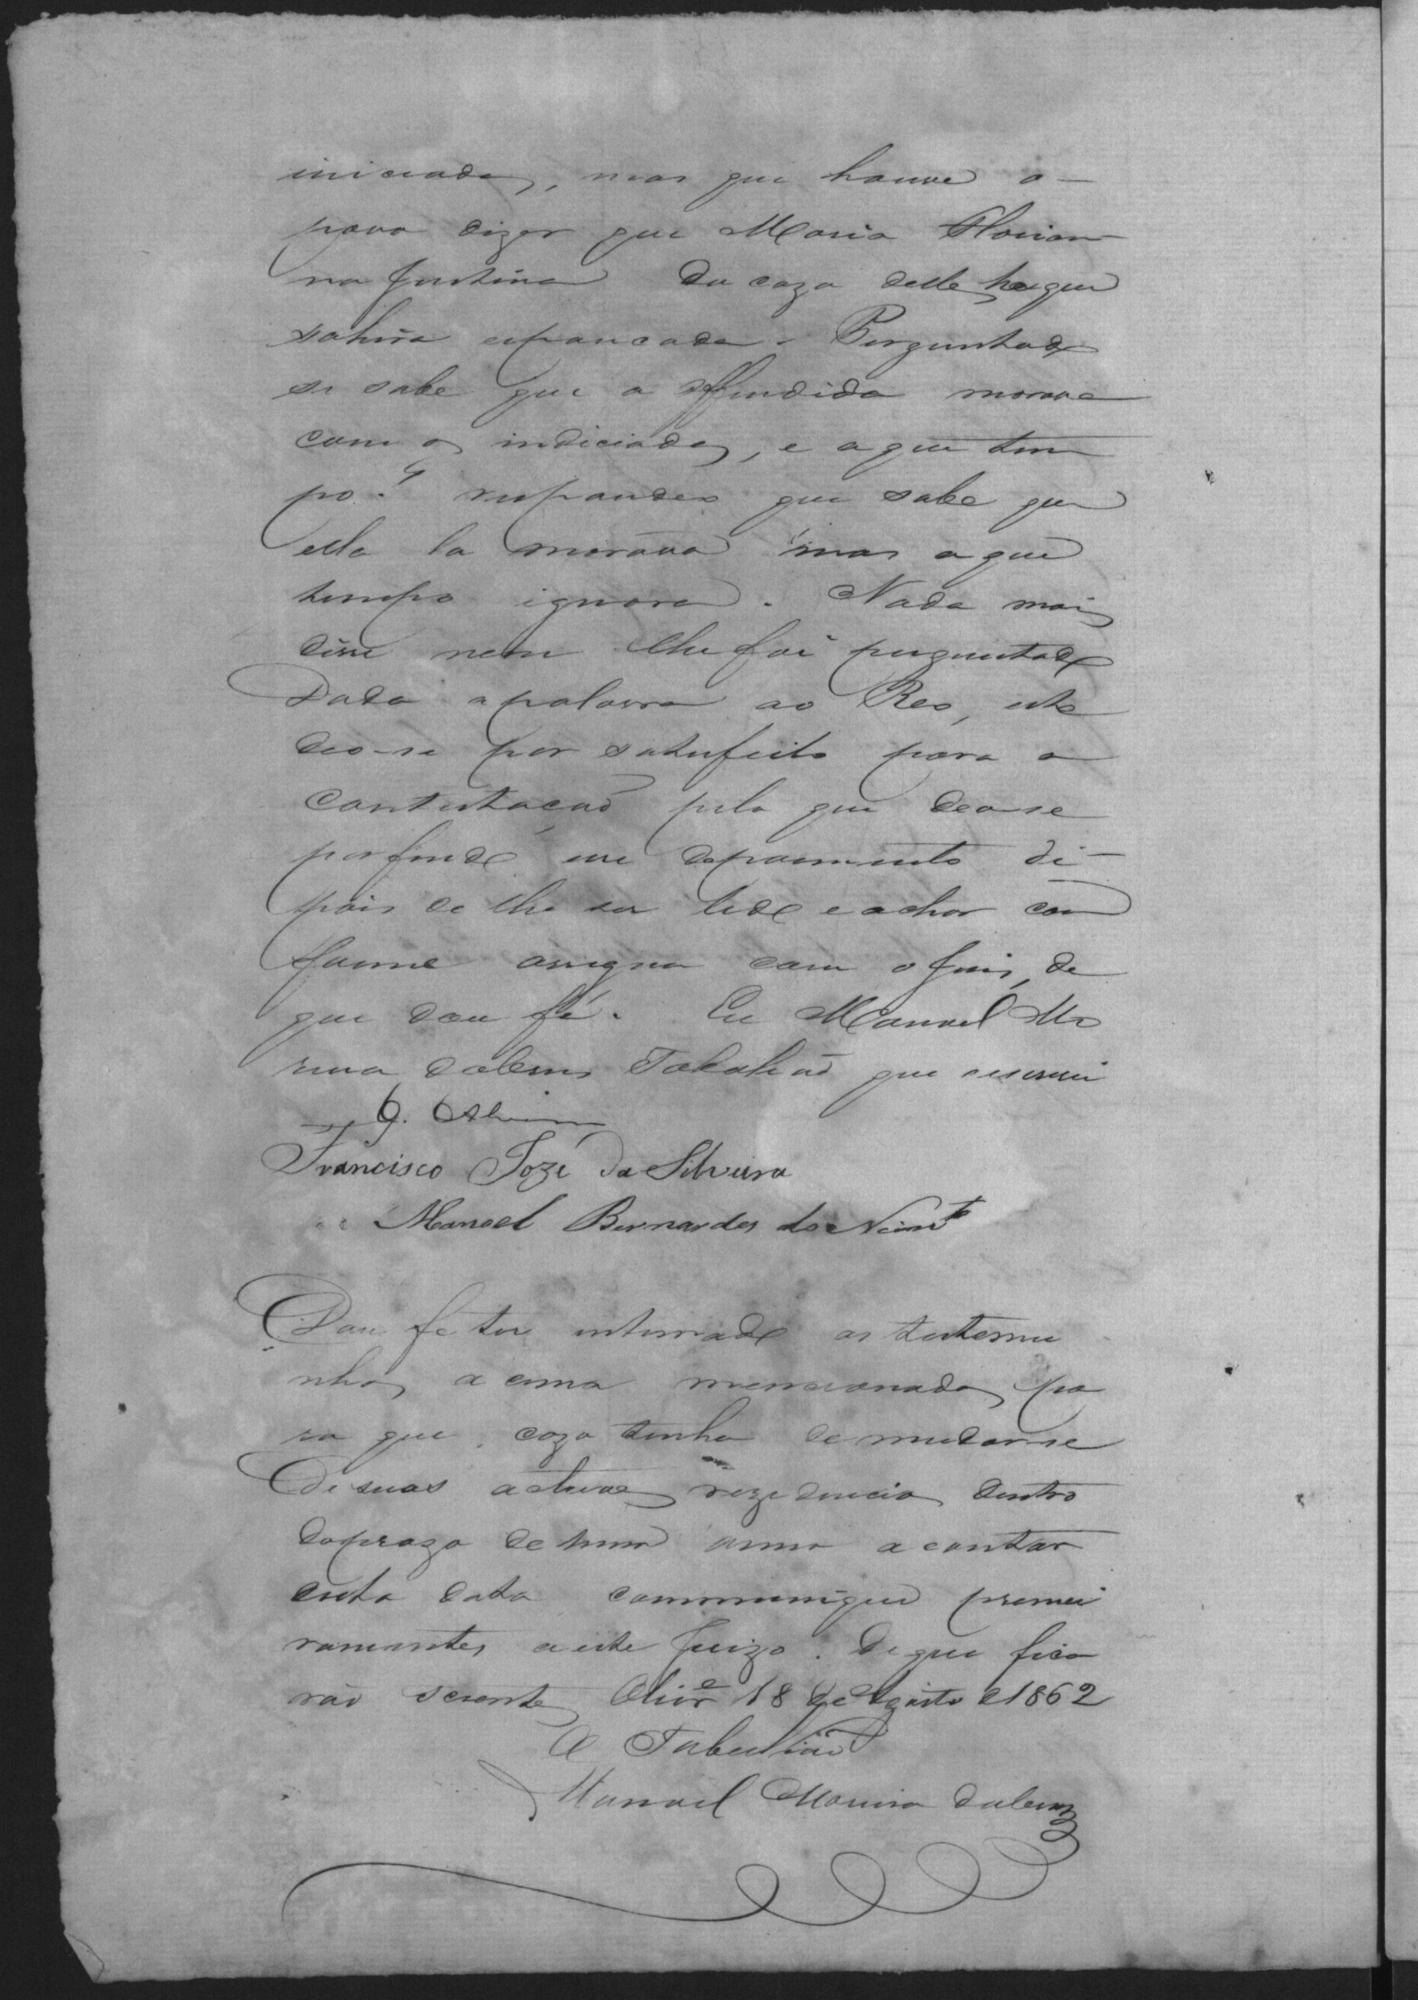 iniciados, mas que houve o
povo dizer que Maria Florian
na Justina da caza delle he que
sahira espancada. Perguntado
se sabe que a offendida morava
com os indiciados, e a que tem
po? respondeo que sabe que
ella la morava mas a que
tempo ignora. Nada mais
disse nem lhe foi perguntado
Dada a palavra ao Reo, este
deo-se por satisfeito para a
contestação pelo que deo-se
por findo este depoimento de-
pois de lhe ser lido e achar con
forme assigna com o Juis, de
que dou fé. Eu Manoel Mo
reira dalem Tabalião que escrevi
Francisco Jozé da Silveira
Manoel Bernardes do Nascimto
Dou fé ter intimado as testemu
nhas acima mencionadas pa
ra que, cazo tenha de mudar-se
de suas actuaes rezidencias dentro
do prazo de hum anno a contar
desta data communique premei
ramentes a este Juizo. De que fica
rão scientes 18 de Agosto de 1862
O Tabellião
Manoel Moreira dalem